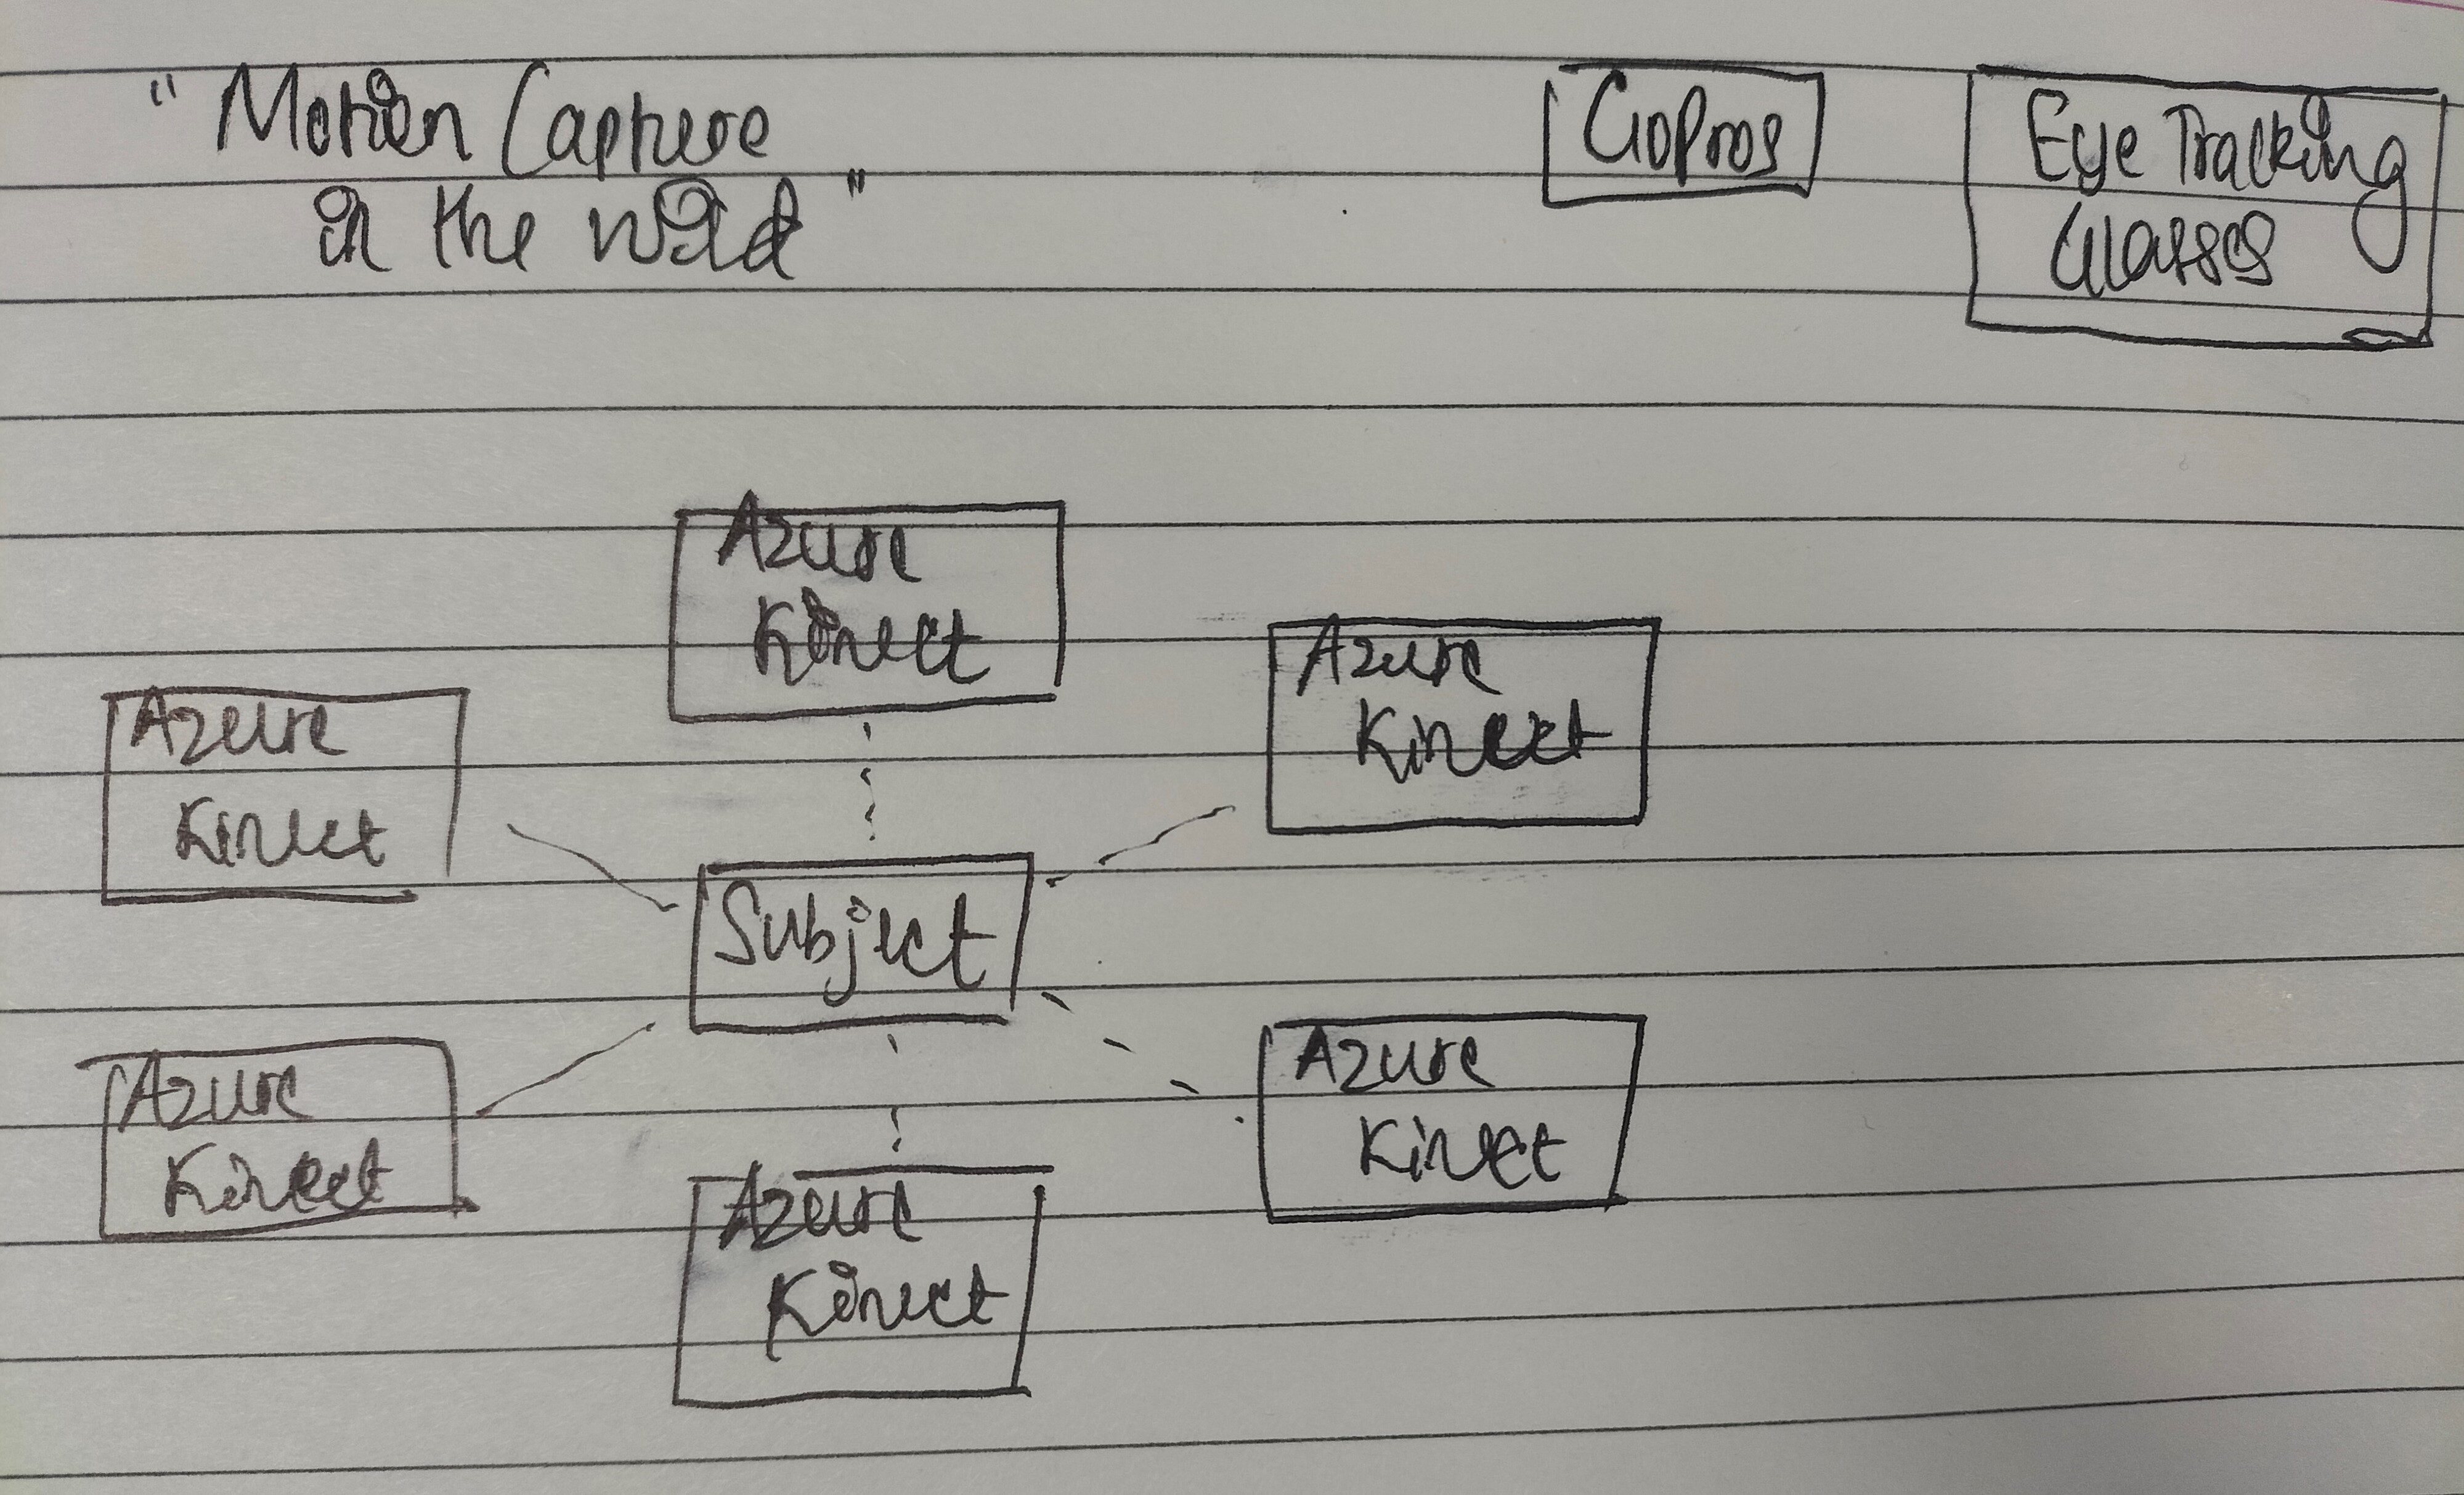 "Motion Capture
in the Wild"
GoPros
Eye Tracking
Glasses
Azure
Kinect
Azure
Kinect
Azure
Kinect
Subject
Azure
Kinect
Azure
Kinect
Azure
Kinect